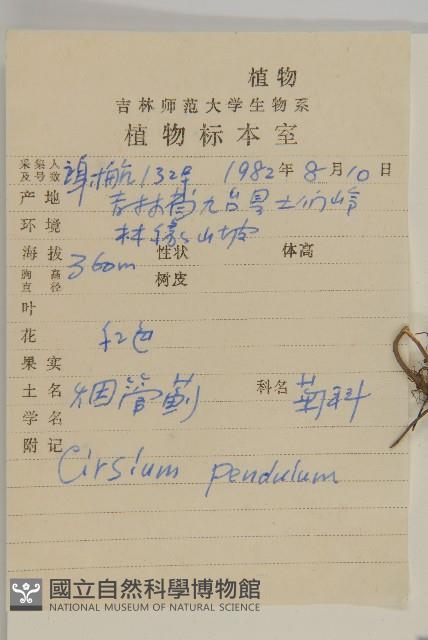 植物
吉林师范大学生物系
植物标本室
采集人及号数 132 1982年 8月10日
产地 吉林 九台 土们岭
环境 林缘山坡
海拔 360m 性状 体高
胸高直径 树皮
叶
花 红色
果实
土名 烟管蓟 科名 菊科
学名
附记
Cirsium pendulum
國立自然科學博物館
NATIONAL MUSEUM OF NATURAL SCIENCE